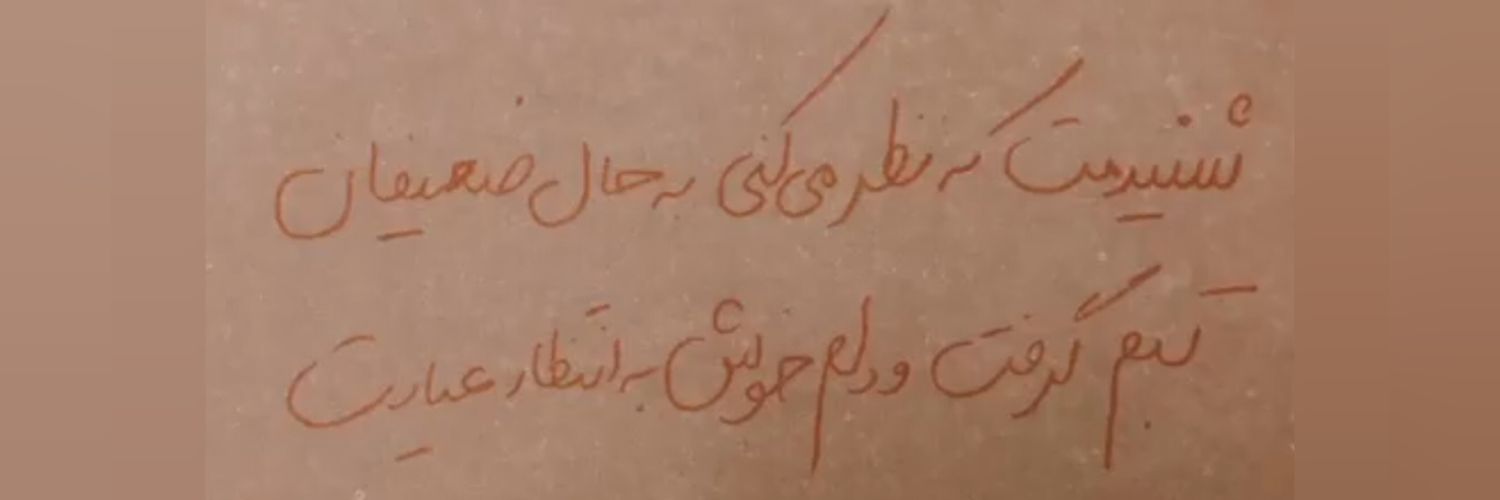 شنیدمت که نظر می‌کنی به حال ضعیفان
تبم گرفت و دلم خوش به انتظار عیادت